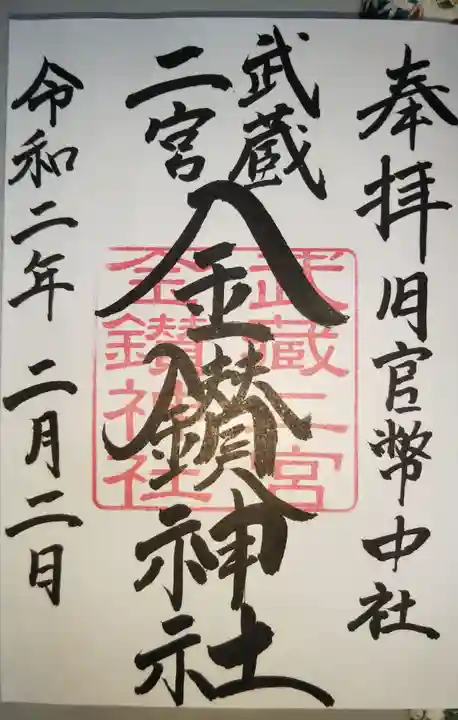 奉拝 旧官幣中社
武蔵
二宮
金鑚神社
武蔵二宮
金鑚神社
令和二年 二月二日